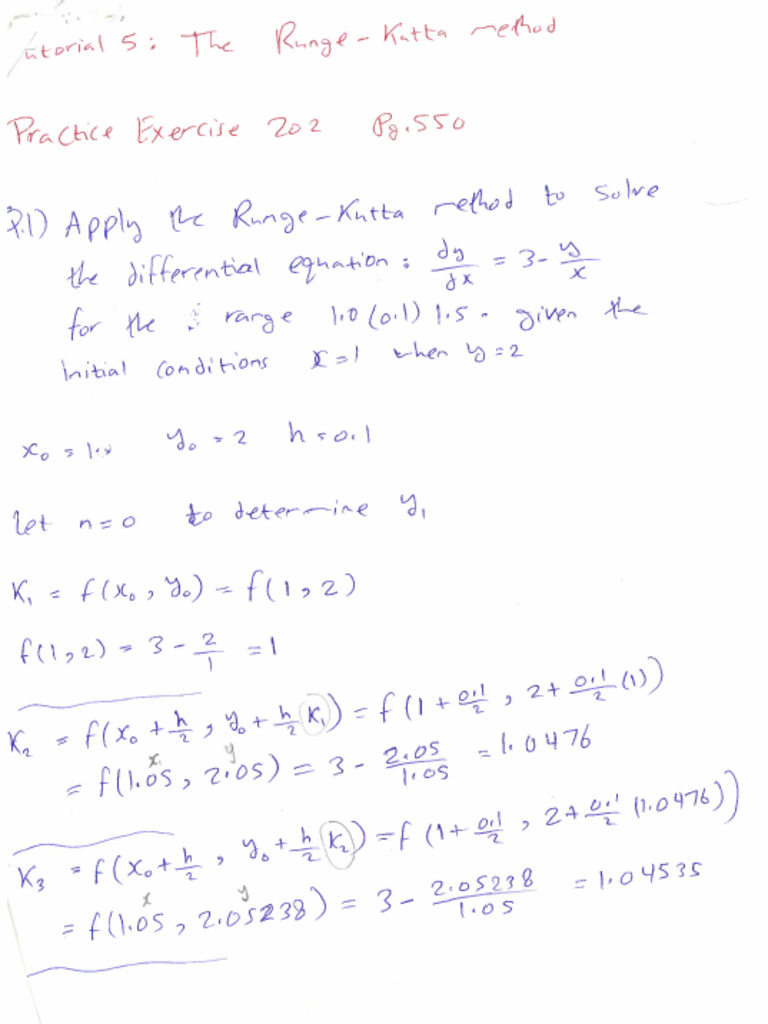 utorial 5: The Runge-Kutta method
Practice Exercise 202 Pg.550
1) Apply the Runge-Kutta method to solve
the differential equation: dy/dx = 3 - y/x
for the range 1.0 (0.1) 1.5. given the
initial conditions x=1 when y=2
x₀ = 1.0 y₀ = 2 h = 0.1
let n=0 to determine y₁
K₁ = f(x₀, y₀) = f(1,2)
f(1,2) = 3 - 2/1 = 1
K₂ = f(x₀ + h/2, y₀ + h/2 K₁) = f(1 + 0.1/2, 2 + 0.1/2 (1))
x y
= f(1.05, 2.05) = 3 - 2.05/1.05 = 1.0476
K₃ = f(x₀ + h/2, y₀ + h/2 K₂) = f(1 + 0.1/2, 2 + 0.1/2 (1.0476))
x y
= f(1.05, 2.05238) = 3 - 2.05238/1.05 = 1.04535